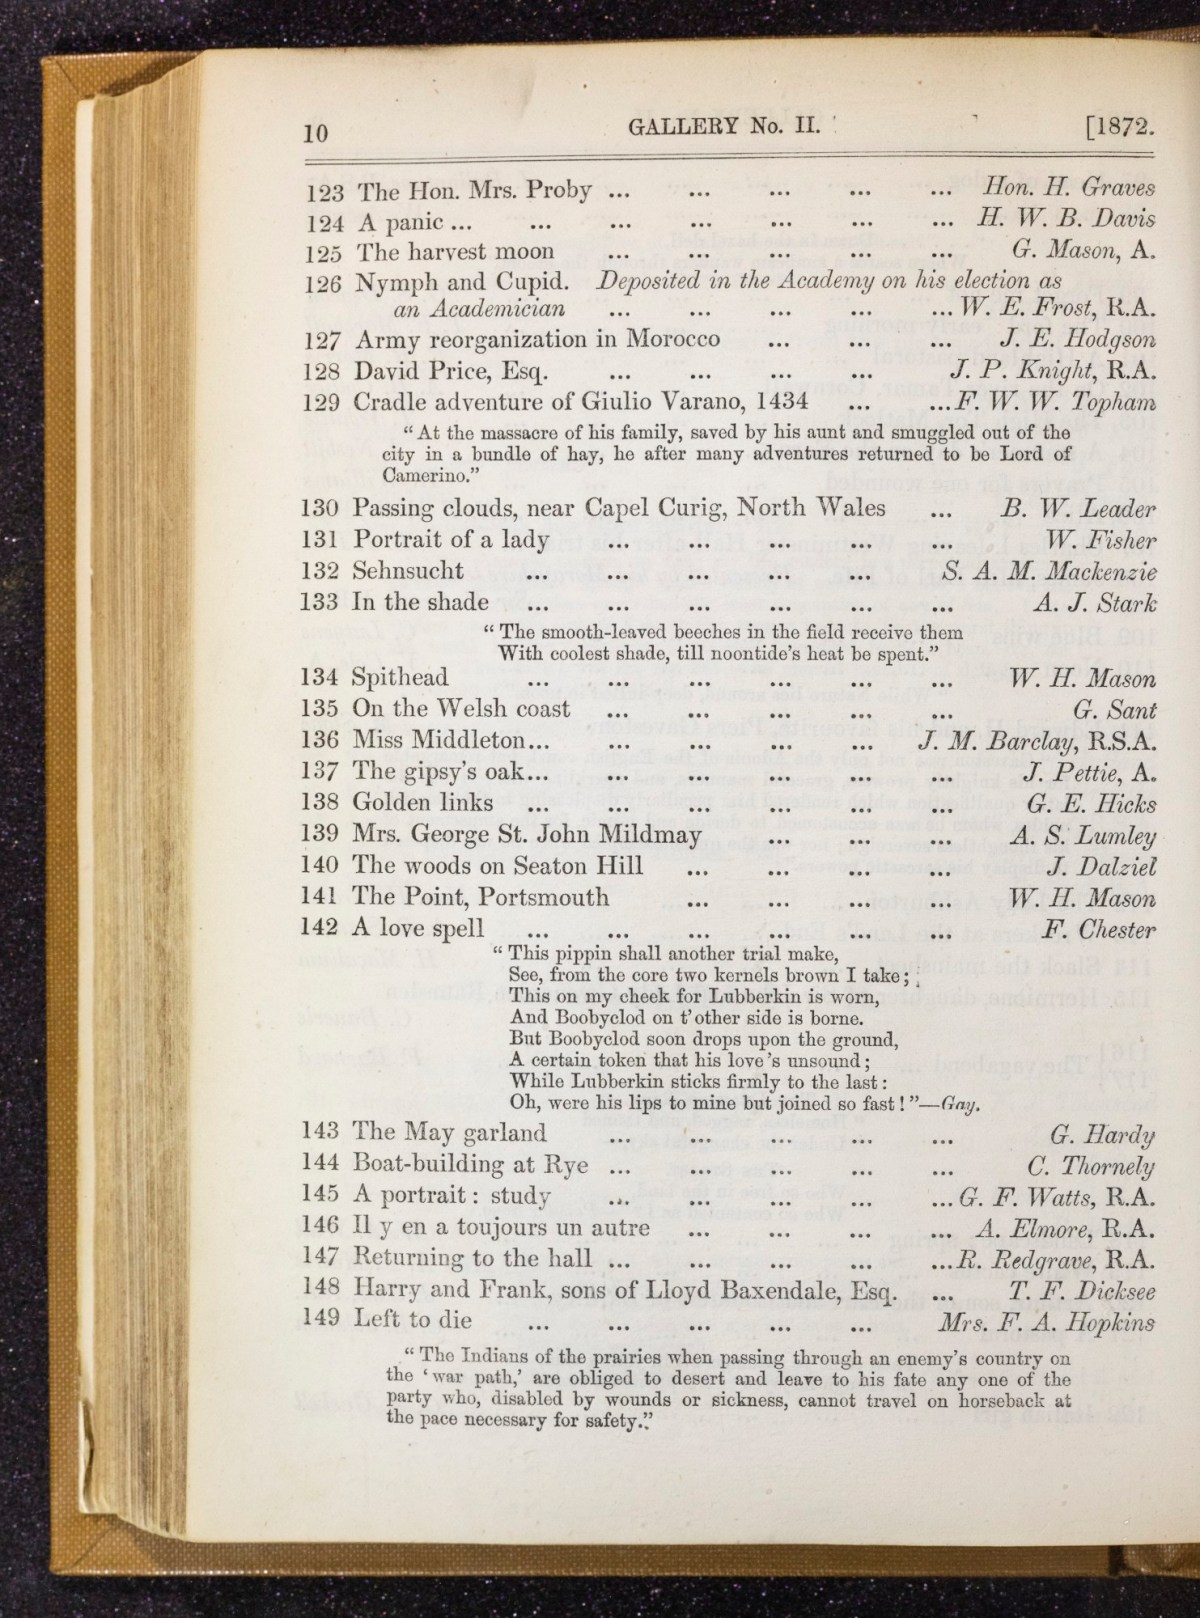 10 GALLERY No. II. [1872.
123 The Hon. Mrs. Proby ... ... ... ... ... Hon. H. Graves
124 A panic ... ... ... ... ... ... ... H. W. B. Davis
125 The harvest moon ... ... ... ... ... G. Mason, A.
126 Nymph and Cupid. Deposited in the Academy on his election as
an Academician ... ... ... ... ... W. E. Frost, R.A.
127 Army reorganization in Morocco ... ... ... J. E. Hodgson
128 David Price, Esq. ... ... ... ... J. P. Knight, R.A.
129 Cradle adventure of Giulio Varano, 1434 ... ... F. W. W. Topham
“At the massacre of his family, saved by his aunt and smuggled out of the
city in a bundle of hay, he after many adventures returned to be Lord of
Camerino.”
130 Passing clouds, near Capel Curig, North Wales ... B. W. Leader
131 Portrait of a lady ... ... ... ... ... W. Fisher
132 Sehnsucht ... ... ... ... ... S. A. M. Mackenzie
133 In the shade ... ... ... ... ... ... A. J. Stark
“The smooth-leaved beeches in the field receive them
With coolest shade, till noontide’s heat be spent.”
134 Spithead ... ... ... ... ... ... W. H. Mason
135 On the Welsh coast ... ... ... ... ... G. Sant
136 Miss Middleton... ... ... ... ... J. M. Barclay, R.S.A.
137 The gipsy’s oak... ... ... ... ... ... J. Pettie, A.
138 Golden links ... ... ... ... ... ... G. E. Hicks
139 Mrs. George St. John Mildmay ... ... ... A. S. Lumley
140 The woods on Seaton Hill ... ... ... ... J. Dalziel
141 The Point, Portsmouth ... ... ... ... W. H. Mason
142 A love spell ... ... ... ... ... ... F. Chester
“This pippin shall another trial make,
See, from the core two kernels brown I take;
This on my cheek for Lubberkin is worn,
And Boobyclod on t’other side is borne.
But Boobyclod soon drops upon the ground,
A certain token that his love’s unsound;
While Lubberkin sticks firmly to the last:
Oh, were his lips to mine but joined so fast!”—Gay.
143 The May garland ... ... ... ... ... G. Hardy
144 Boat-building at Rye ... ... ... ... ... C. Thornely
145 A portrait: study ... ... ... ... ... G. F. Watts, R.A.
146 Il y en a toujours un autre ... ... ... ... A. Elmore, R.A.
147 Returning to the hall ... ... ... ... ... R. Redgrave, R.A.
148 Harry and Frank, sons of Lloyd Baxendale, Esq. ... T. F. Dicksee
149 Left to die ... ... ... ... ... Mrs. F. A. Hopkins
“The Indians of the prairies when passing through an enemy’s country on
the ‘war path,’ are obliged to desert and leave to his fate any one of the
party who, disabled by wounds or sickness, cannot travel on horseback at
the pace necessary for safety.”